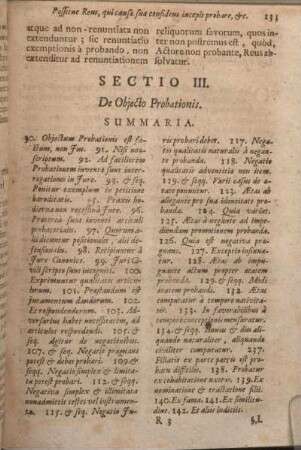 Possitne Reus, qui causæ suæ confidens incepit probare, &c. 133
atque ad non-renuntiata non
extenduntur; sic renuntiatio
exemptionis à probando, non
extenditur ad renuntiationem
reliquorum favorum, quos in-
ter non postremus est, quòd,
Actore non probante, Reus ab-
solvatur.
SECTIO III.
De Objecto Probationis.
SUMMARIA.
90. Objectum Probationis est fa-
ctum, non Jus. 91. Nisi non
scriptum. 92. Ad faciliorem
Probationem inventa sunt inter-
rogationes in Jure. 93. & seq.
Ponitur exemplum in petitione
hæreditatis. 95. Praxis ho-
dierna non recessit à Jure. 96.
Præterea sunt inventi articuli
probatoriales. 97. Quorum a-
lii dicuntur positionales, alii de-
fensionales. 98. Recipiuntur à
Jure Canonico. 99. Juri Ci-
vili scripto sunt incogniti. 100.
Exprimuntur qualitates articu-
lorum. 101. Præstandum est
juramentum dandorum. 102.
Et respondendorum. 103. Ad-
versarius habet necessitatem, ad
articulos respondendi. 105. &
seq. Agitur de negationibus.
107. & seq. Negatio prægnans
potest & debet probari. 109. &
seq. Negatio simplex & limitata
potest probari. 112. & seqq.
Negatio simplex & illimitata
non admittit testes vel instrumen-
ta. 115. & seq. Negatio Ju-
ris probari debet. 117. Ne-
gatio qualitatis naturalis à negan-
te probanda. 118. Negatio
qualitatis advenientis non item.
119. & seqq. Varii casus de-
ponuntur. 123. Ætas ab
allegante pro sua idoneitate pro-
banda. 124. Quid variet.
125. Ætas à negante ad impe-
diendum promotionem probanda.
126. Quia est negativa præ-
gnans. 127. Exceptio insinua-
tur. 128. Ætas ab impu-
gnante actum propter ætatem
probanda. 129. & seqq. Andi
ætatem probandi. 132. Ætas
computatur à tempore nativita-
tis. 133. In favorabilibus à
tempore conceptionis mensuratur.
134. & seqq. Annus & dies ali-
quando naturaliter, aliquando
civiliter computatur. 137.
Filiatio ex parte patris est pro-
batu difficilis. 138. Probatur
ex cohabitatione uxoris. 139. Ex
nominatione & tractatione filii.
140. Ex fama. 141. Ex similitu-
dine. 142. Et aliis indiciis.
R 3 §. I.